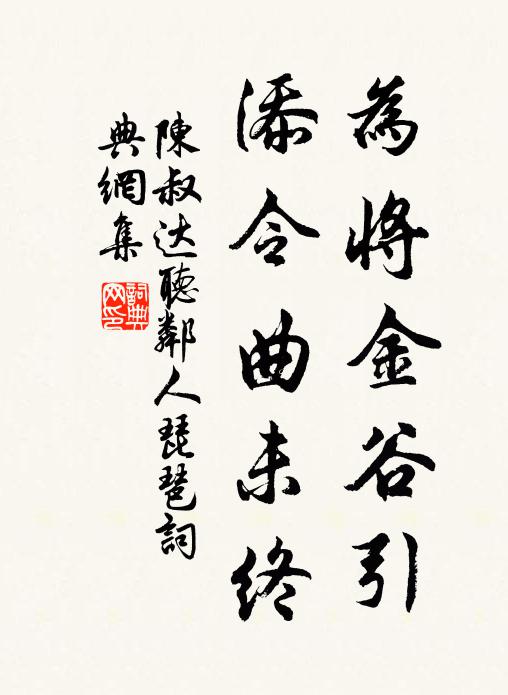 為將金谷引
添令曲未終
陳叔达聽鄰人琵琶詞
典網集
詞典
网印